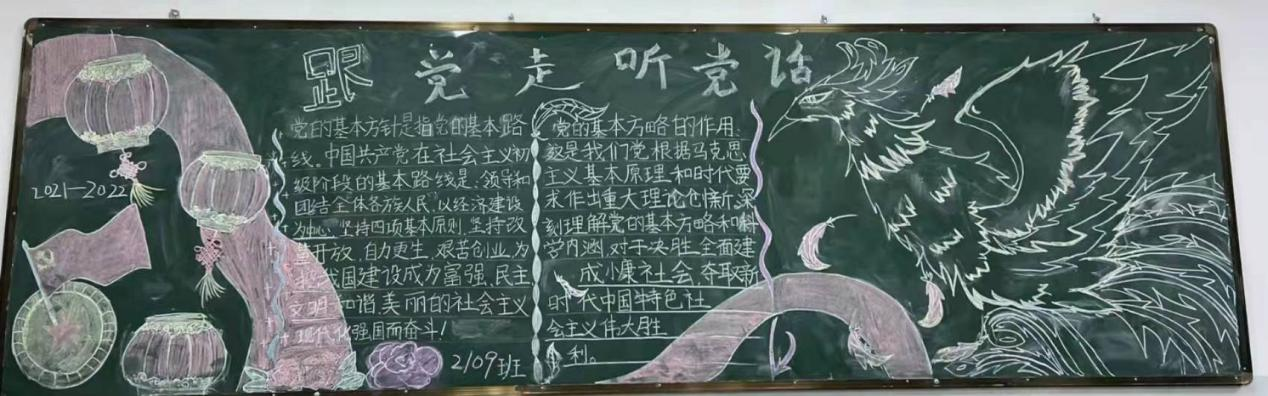 跟党走听党话
2021-2022
党的基本方针是指党的基本路
线。中国共产党在社会主义初
级阶段的基本路线是:领导和
团结全体各族人民,以经济建设
为中心,坚持四项基本原则,坚持改
革开放,自力更生,艰苦创业,为
我国建设成为富强、民主
文明和谐美丽的社会主义
现代化强国而奋斗!
2109班
党的基本方略的作用:
这是我们党根据马克思
主义基本原理和时代要
求作出重大理论创新,深
刻理解党的基本方略和科
学内涵,对于决胜全面建
成小康社会,夺取新
时代中国特色社
会主义伟大胜
利。